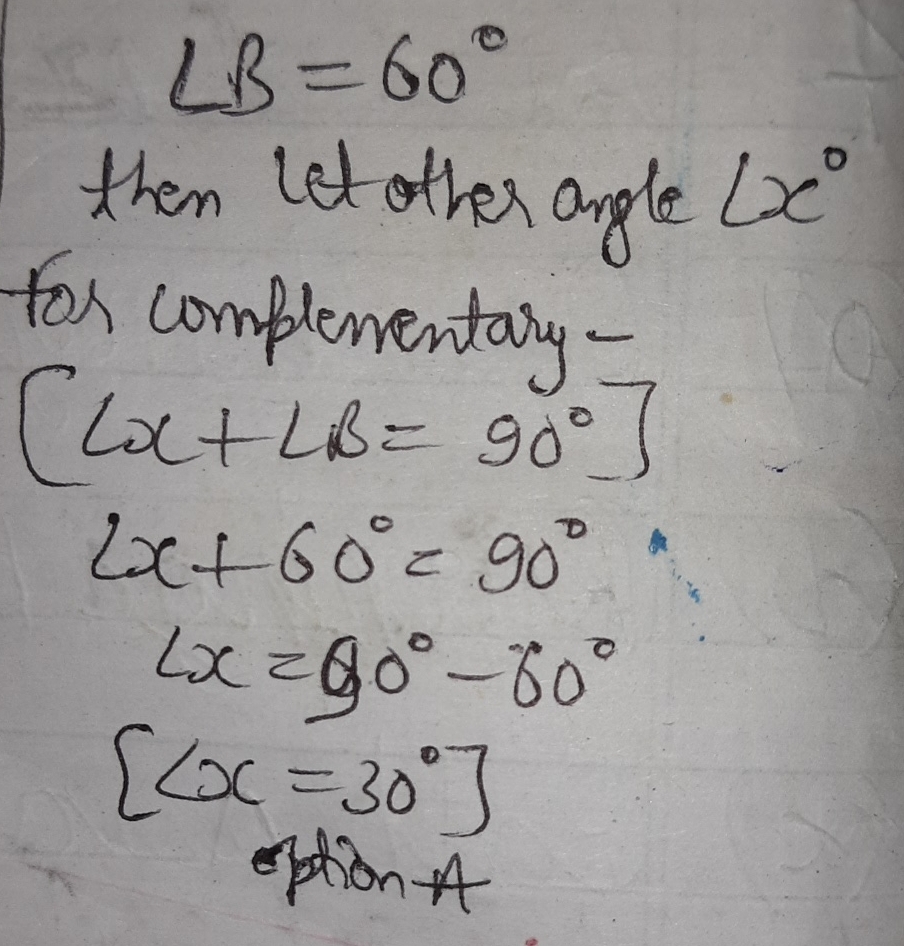 ∠B = 60°
then let other angle ∠x°
for complementary -
[∠x + ∠B = 90°]
∠x + 60° = 90°
∠x = 90° - 60°
[∠x = 30°]
option A